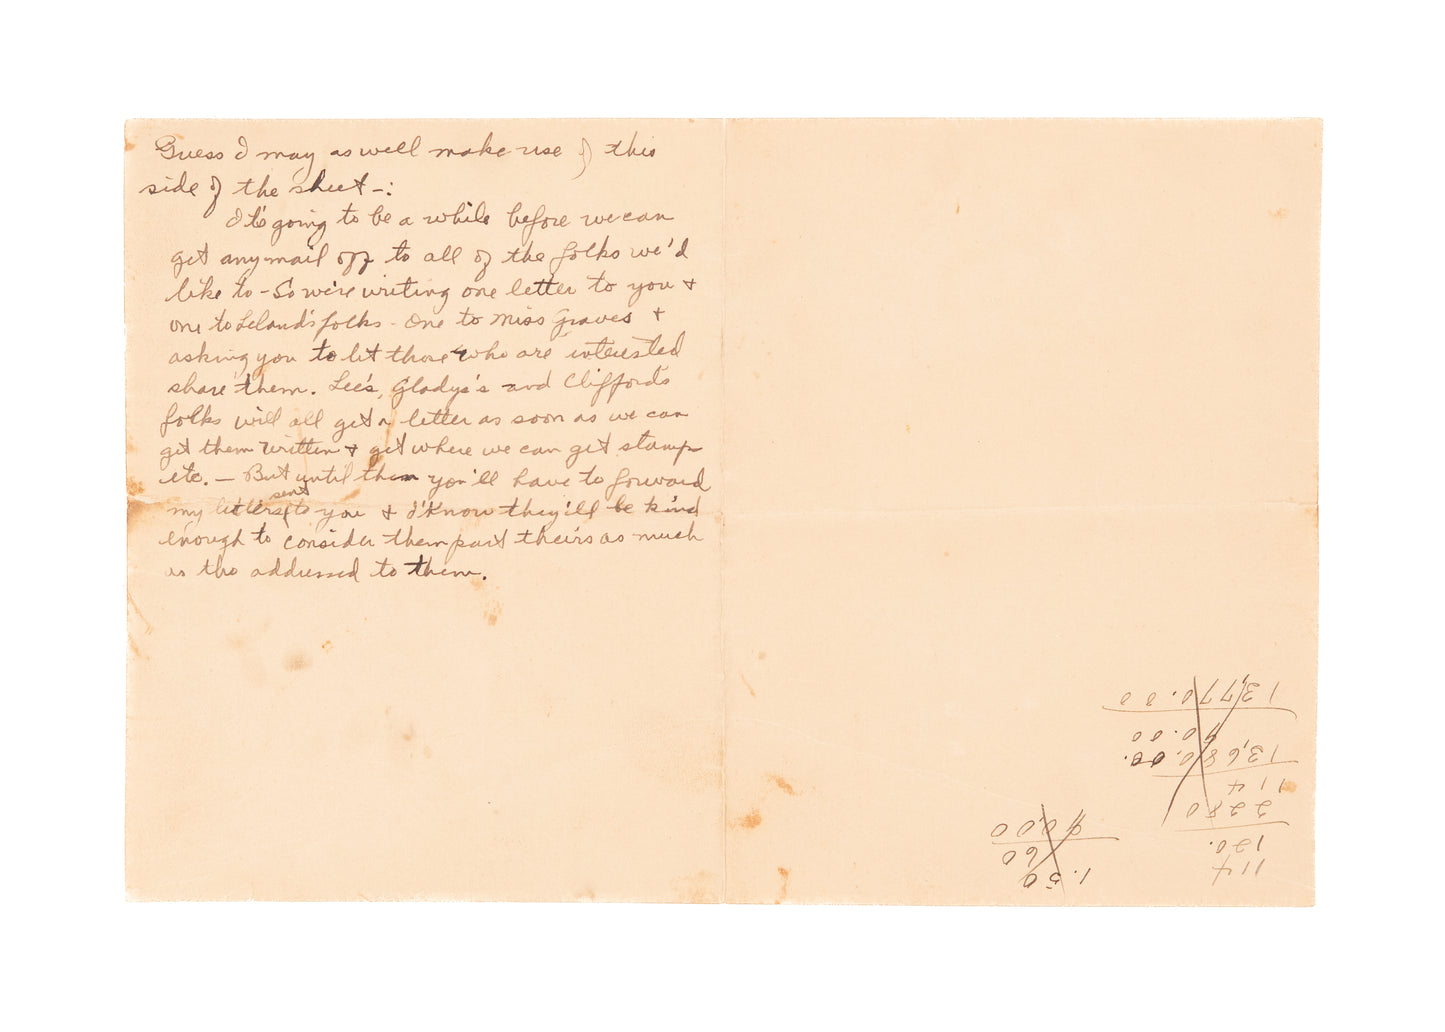 Guess I may as well make use of this
side of the sheet -:
It's going to be a while before we can
get any mail off to all of the folks we'd
like to - So we're writing one letter to you +
one to Leland's folks - One to Miss Graves +
asking you to let those who are interested
share them. Lee's, Gladys's and Clifford's
folks will all get a letter as soon as we can
get them written + get where we can get stamps
etc. - But until then you'll have to forward
my letters sent to you + I know they'll be kind
enough to consider them part theirs as much
as tho addressed to them.
114
120.
2280
114
13,680.00.
90.00
13,770.00
1.50
60
90.00